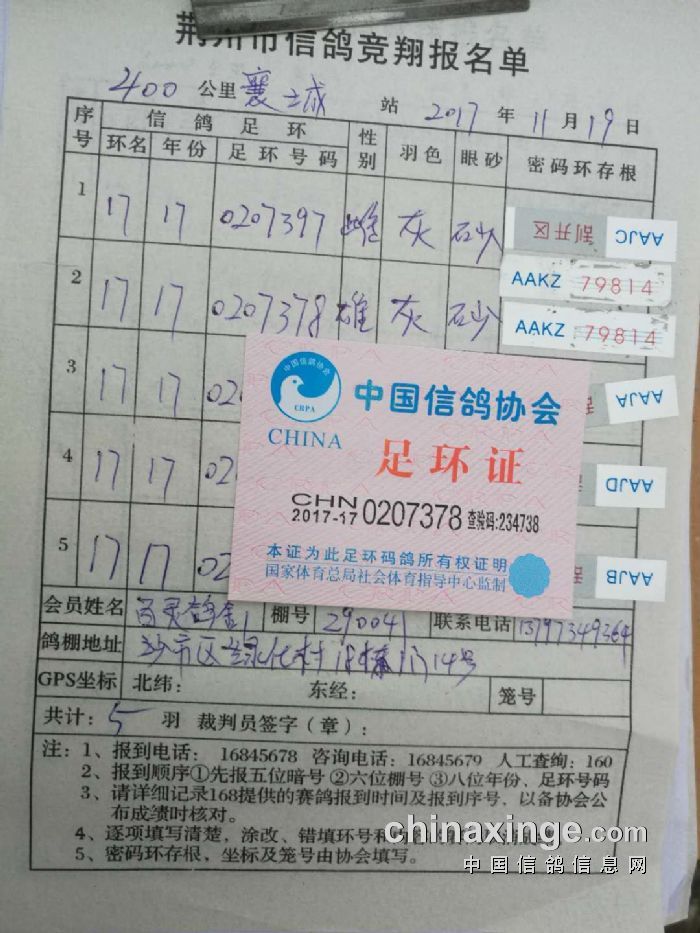 荆州市信鸽竞翔报名单
400 公里 襄城 站 2017 年 11 月 19 日
序号 信鸽足环 性别 羽色 眼砂 密码环存根
环名 年份 足环号码
1 17 17 0207397 雌 灰 砂 刮开区 AAJC
AAKZ 79814
2 17 17 0207378 雄 灰 砂 AAKZ 79814
3 17 17 020 AAJA
4 17 17 02 AAJD
5 17 17 02 AAJB
中国信鸽协会
CRPA
中国信鸽协会
CHINA
足环证
CHN
2017-17 0207378 查验码:234738
本证为此足环码鸽所有权证明
国家体育总局社会体育指导中心监制
会员姓名 棚号 290041 联系电话 13797349264
鸽棚地址 沙市区 村 栋 14号
GPS坐标 北纬: 东经: 笼号
共计: 5 羽 裁判员签字(章):
注: 1、报到电话: 16845678 咨询电话: 16845679 人工查询: 160
2、报到顺序①先报五位暗号 ②六位棚号 ③八位年份、足环号码
3、请详细记录168提供的赛鸽报到时间及报到序号, 以备协会公
布成绩时核对。
4、逐项填写清楚, 涂改、错填环号和
5、密码环存根, 坐标及笼号由协会填写。
chinaxinge.com
中国信鸽信息网